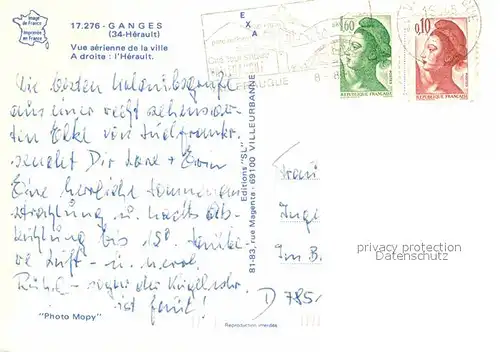 Image
de France
Imprimée
en France
17.276 - GANGES
(34-Hérault)
Vue aérienne de la ville
A droite : l'Hérault.
EXA
1,60
REPUBLIQUE FRANÇAISE
0,10
REPUBLIQUE FRANÇAISE
Die besten Urlaubsgrüße
aus einer recht sehenswer-
ten Ecke von Südfrankr.
sendet Dir Lore + Erwin
Eine herrliche Sonnenein-
strahlung u. nachts Ab-
kühlung bis 15°.
Luft - u.
Ruhe - sogar der
ist fort!
"Photo Mopy"
Editions "SL"
81-83, rue Magenta - 69100 VILLEURBANNE
Reproduction interdite
Frau
Inge
Im B.
D 785
privacy protection
Datenschutz